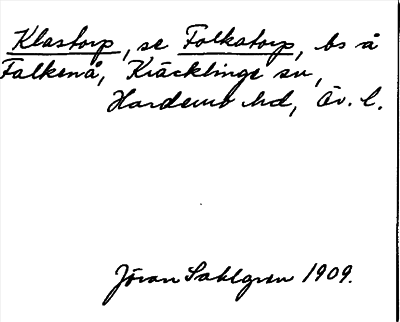 Klastorp, se Folkatorp, bs å
Falkenå, Kräcklinge sn,
Hardemo hd, Öv. l.
Jöran Sahlgren 1909.